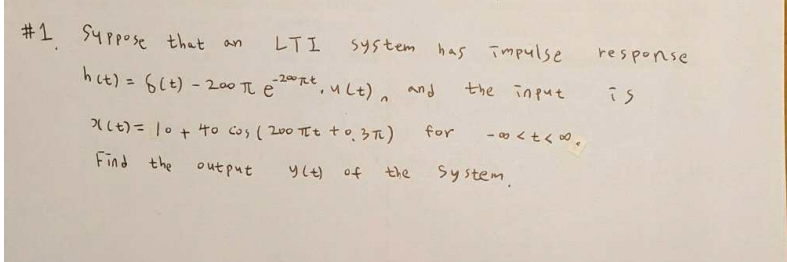 #1. Suppose that an LTI system has impulse response
h(t) = δ(t) - 200 π e^{-200πt}. u(t), and the input is
x(t) = 10 + 40 cos(200πt + 0.3π) for -∞ < t < ∞.
Find the output y(t) of the system.